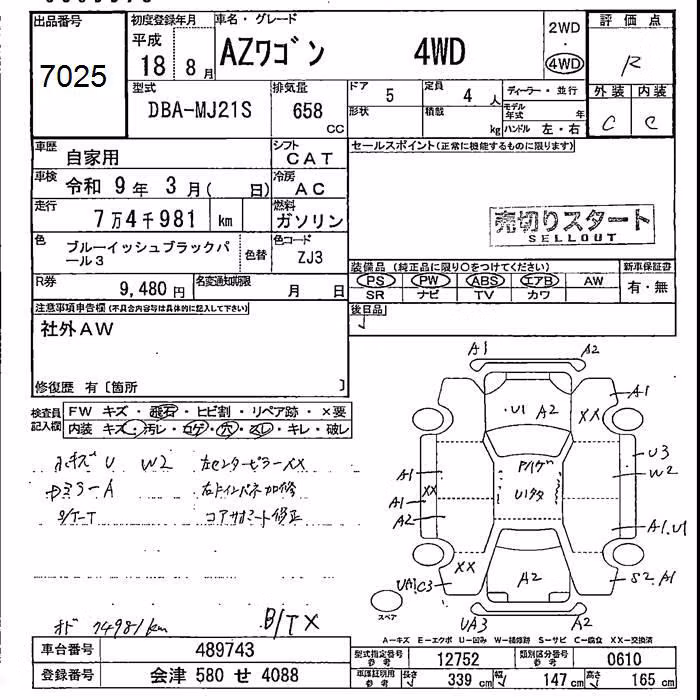 出品番号
7025
初度登録年月
平成
18 8 月
車名・グレード
AZワゴン 4WD
2WD
・
4WD
評価点
R
外装 内装
C C
型式
DBA-MJ21S
排気量
658
CC
ドア
5
定員
4 人
形状
積載
kg
ディーラー・並行
モデル年式 年
ハンドル 左・右
車歴
自家用
シフト
CAT
車検
令和 9 年 3 月( 日)
冷房
AC
走行
7万4千981 km
燃料
ガソリン
色
ブルーイッシュブラックパール3
色替
色コード
ZJ3
R券
9,480 円
名変通知期限
月 日
セールスポイント(正常に機能するものに限ります)
売切りスタート
SELLOUT
装備品 (純正品に限り○をつけてください)
PS PW ABS エアB AW
SR ナビ TV カワ
新車保証書
有・無
後日品
注意事項申告欄(不具合内容等は具体的に記入して下さい)
社外AW
修復歴 有〔箇所 〕
検査員記入欄
FW キズ・飛石・ヒビ割・リペア跡・×要
内装 キズ・汚レ・コゲ・穴・スレ・キレ・破レ
W2 左センターピラーXX
中ミラーA 右ドインパネ加修
コアサポート修正
74981km
B/TX
A1 A2
U1 A2
XX A1
U3
W2
A1
XX
A1
A2
U1
A1.U1
XX
UA1C3
A2
S2.A1
スペア
UA3 A2
A-キズ E-エクボ U-凹み W-補修跡 S-サビ C-腐食 XX-交換済
車台番号 489743
登録番号 会津 580 せ 4088
型式指定番号 参考 12752
類別区分番号 参考 0610
車検証別用 参考 長さ 339 cm 幅 147 cm 高さ 165 cm